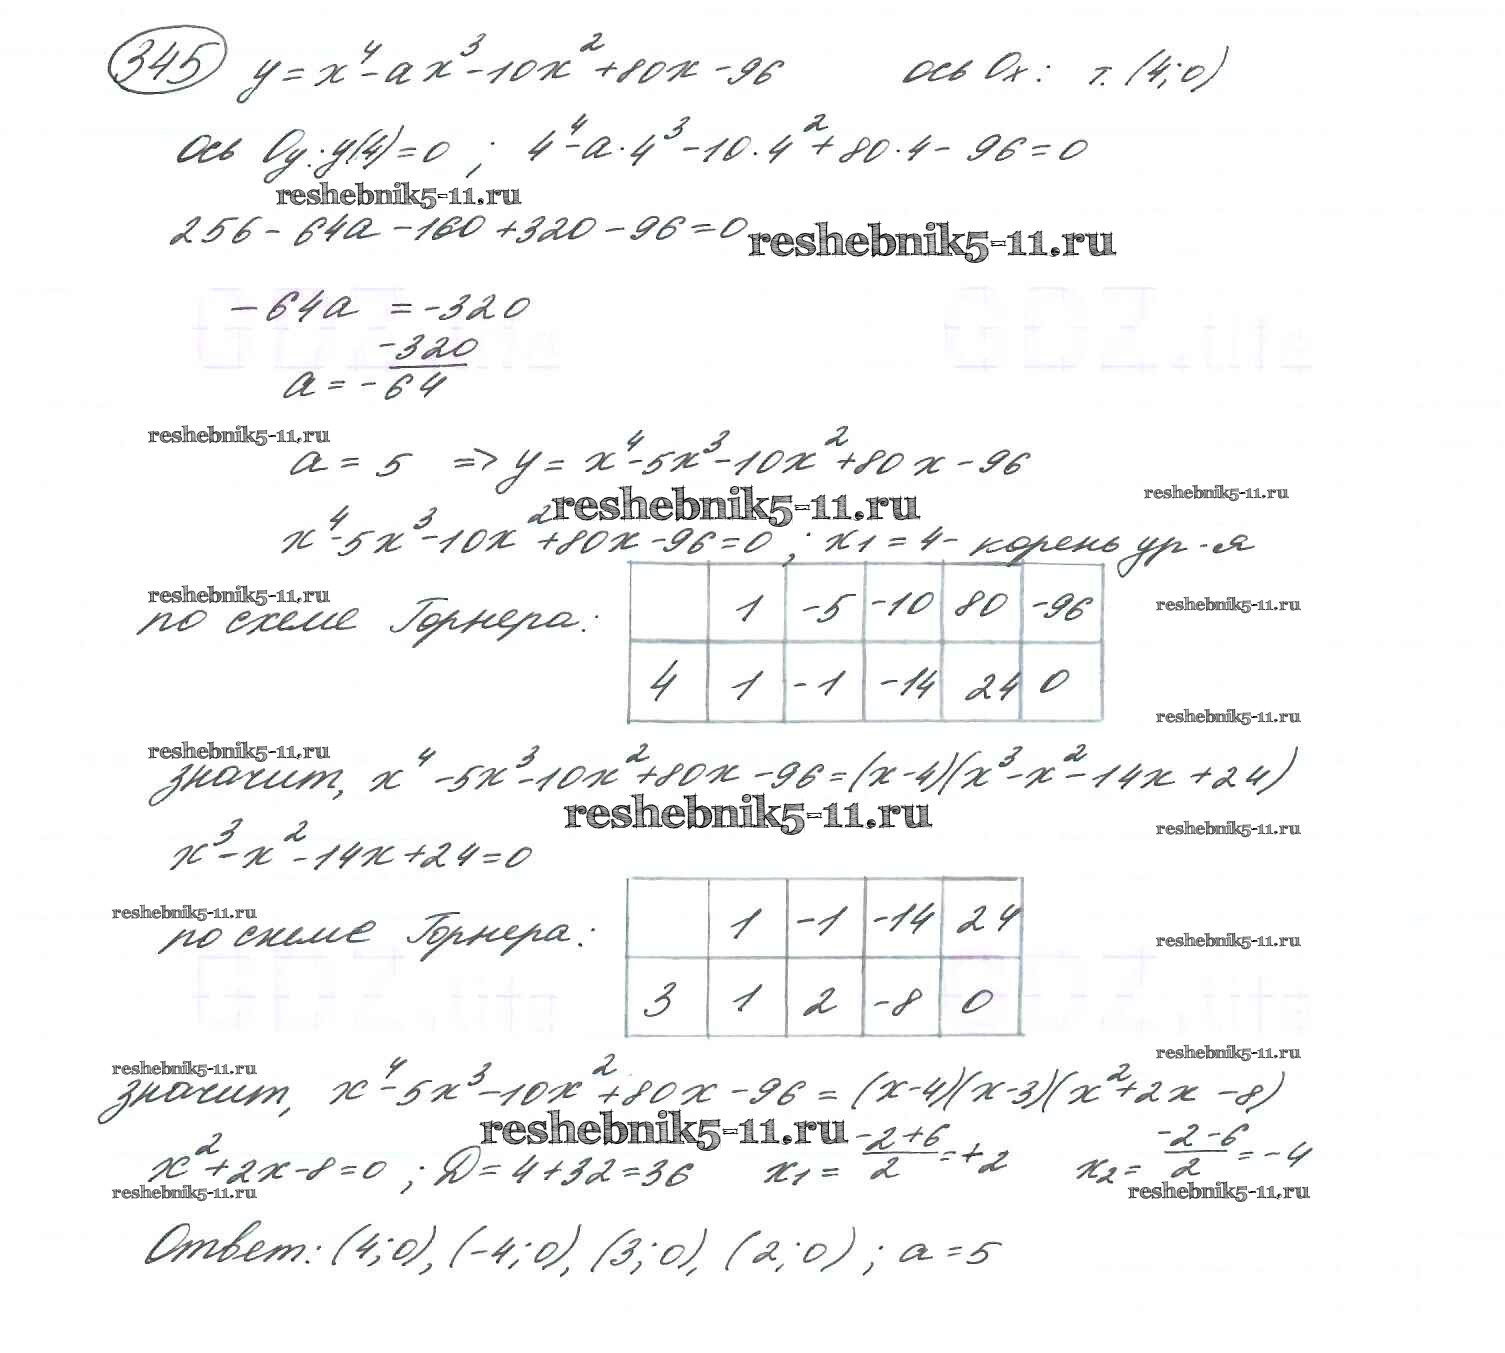 345 y = x⁴ - ax³ - 10x² + 80x - 96 ось Ox: т. (4; 0)
ось Oy: y(4) = 0 ; 4⁴ - a · 4³ - 10 · 4² + 80 · 4 - 96 = 0
reshebnik5-11.ru
256 - 64a - 160 + 320 - 96 = 0 reshebnik5-11.ru
GDZ.ltd GDZ.ltd
- 64a = -320
a = -320/-64
reshebnik5-11.ru
a = 5 => y = x⁴ - 5x³ - 10x² + 80x - 96
reshebnik5-11.ru reshebnik5-11.ru
x⁴ - 5x³ - 10x² + 80x - 96 = 0 ; x₁ = 4 - корень ур-я
reshebnik5-11.ru reshebnik5-11.ru
по схеме Горнера: 1 -5 -10 80 -96
4 1 -1 -14 24 0
reshebnik5-11.ru
reshebnik5-11.ru
значит, x⁴ - 5x³ - 10x² + 80x - 96 = (x - 4)(x³ - x² - 14x + 24)
reshebnik5-11.ru reshebnik5-11.ru
x³ - x² - 14x + 24 = 0
reshebnik5-11.ru
по схеме Горнера: 1 -1 -14 24
reshebnik5-11.ru
3 1 2 -8 0
reshebnik5-11.ru reshebnik5-11.ru
значит, x⁴ - 5x³ - 10x² + 80x - 96 = (x - 4)(x - 3)(x² + 2x - 8)
reshebnik5-11.ru
x² + 2x - 8 = 0 ; D = 4 + 32 = 36 x₁ = (-2+6)/2 = +2 x₂ = (-2-6)/2 = -4
reshebnik5-11.ru reshebnik5-11.ru
Ответ: (4; 0), (-4; 0), (3; 0), (2; 0) ; a = 5